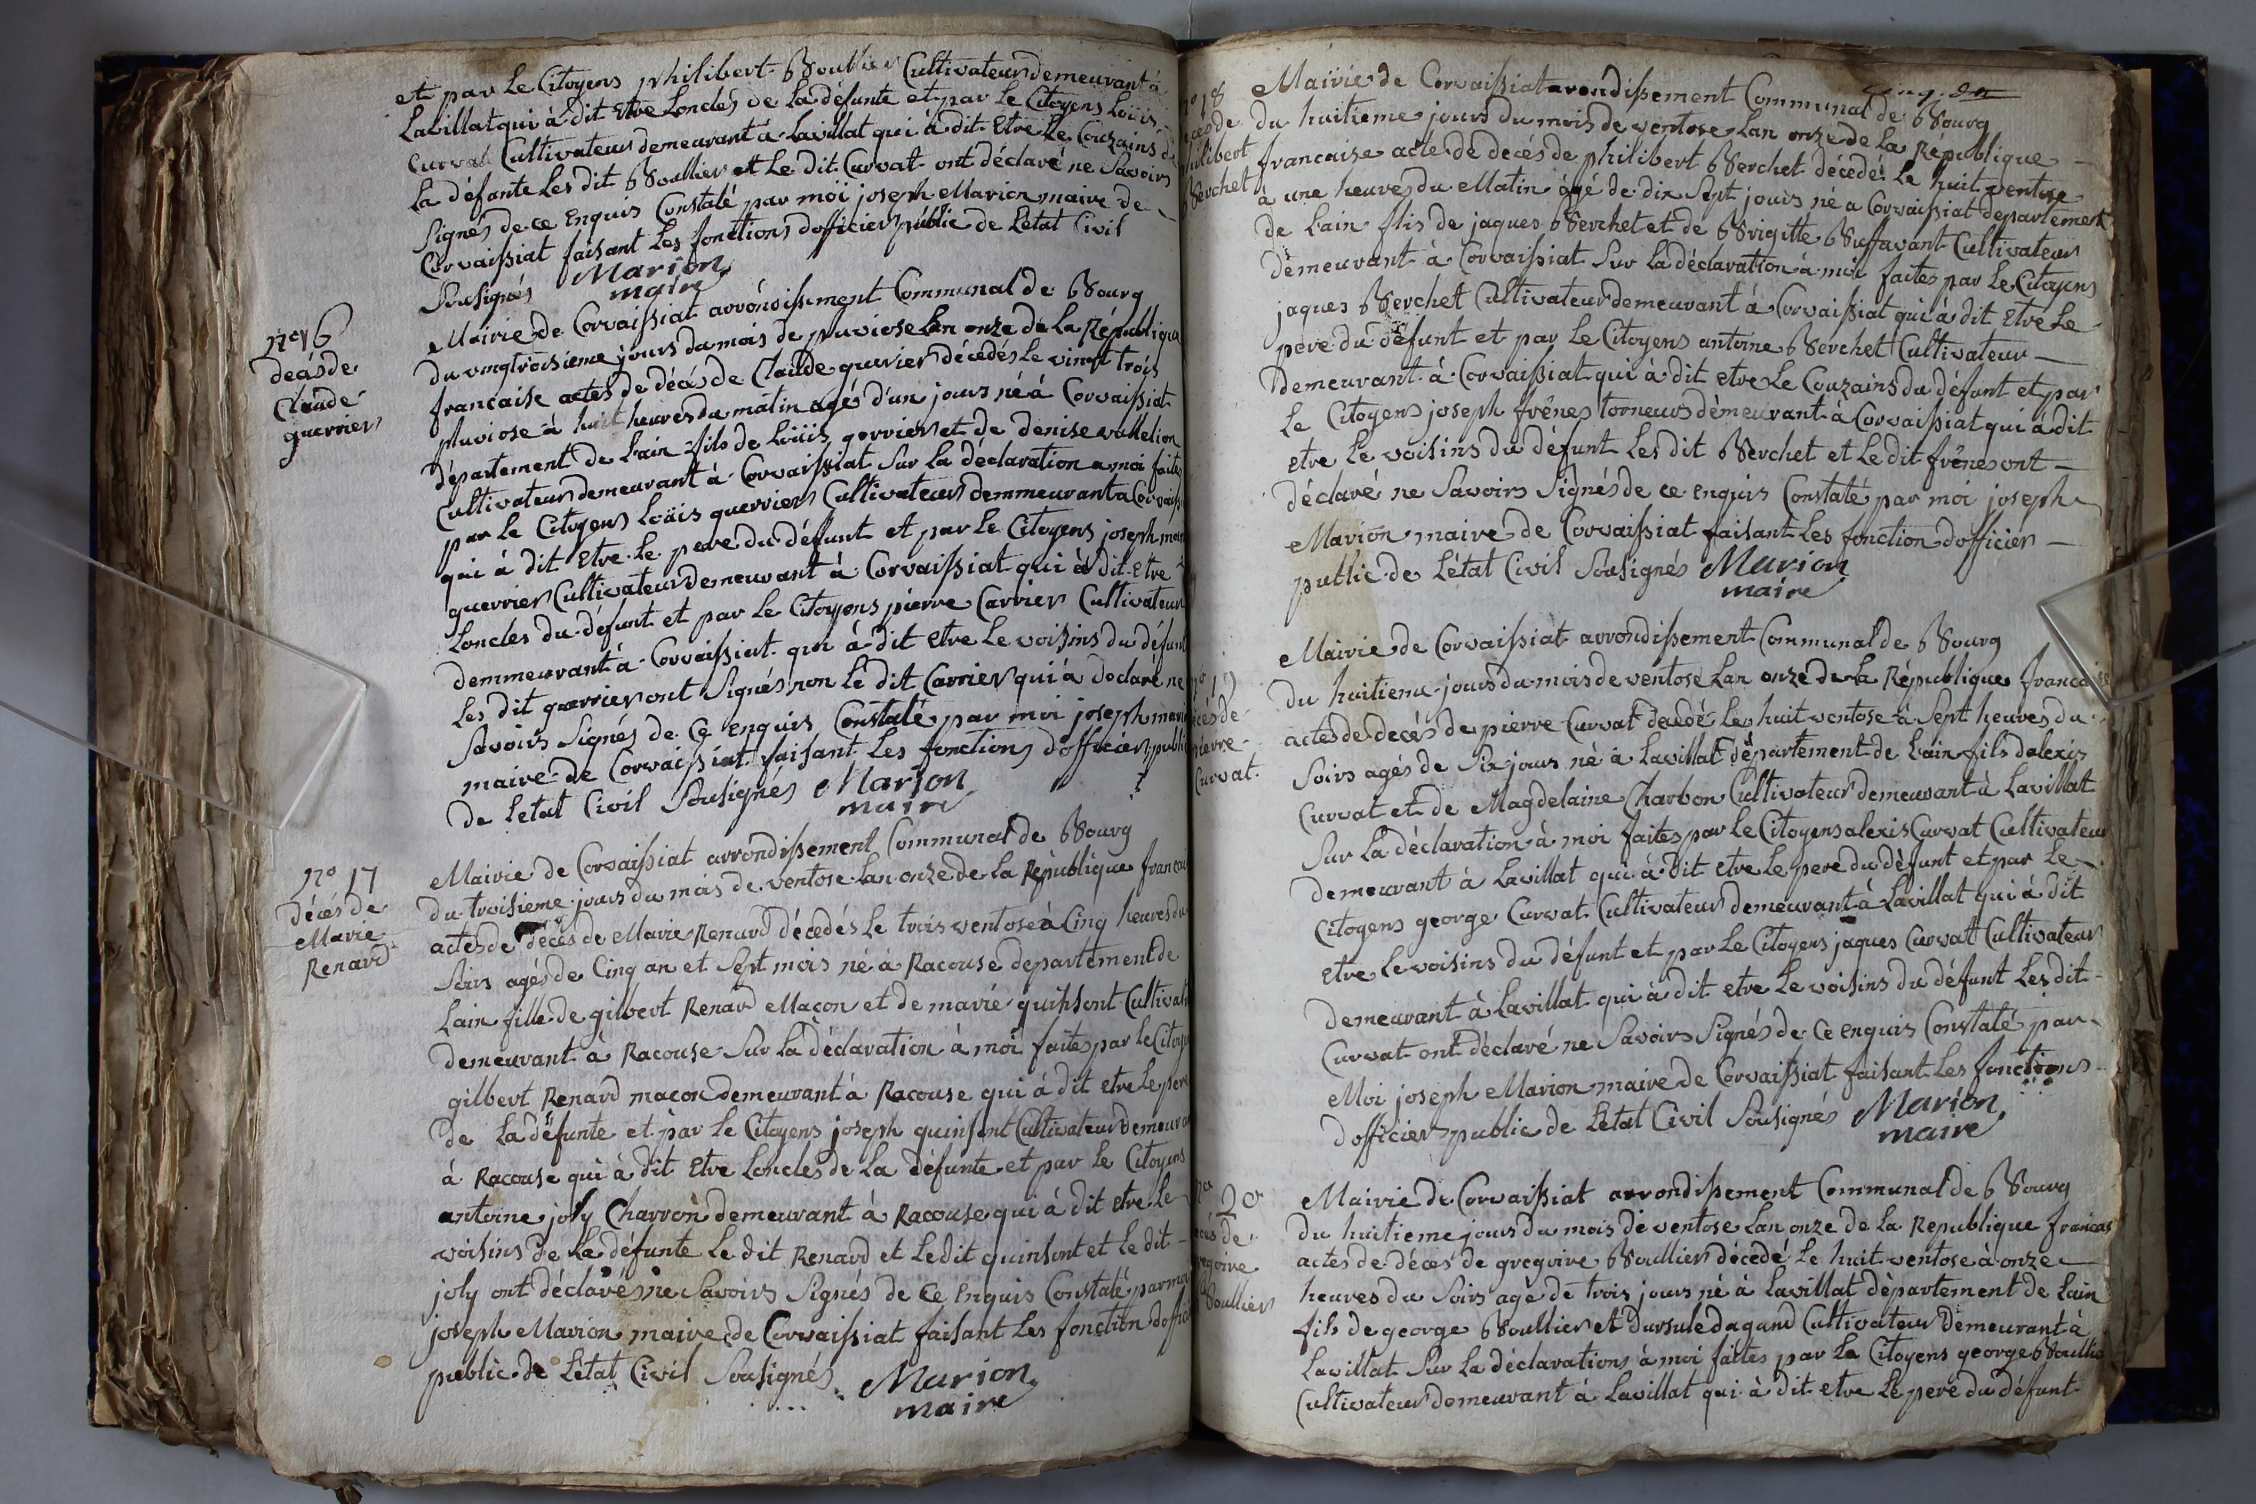 et par Le Citoyens philibert Boullier Cultivateur demeurant à
Lavillat qui à dit Etre Loncles de La défunte et par Le Citoyens Loüis
Curvat Cultivateur demeurant à Lavillat qui à dit Etre Le Couzains de
La défante Les dit Boullier et Le dit Curvat ont déclaré ne Savoirs
Signés de ce Enquis Constaté par moï joseph Marion maire de
Corvaissiat faisant Les fonctions dofficier public de Letat Civil
Sousignés Marion
maire
n°16
decés de
Claude
guerrier
Mairie de Corvaissiat arrondissement Communal de Bourg
du vingtroisieme jours du mois de pluviose Lan onze de La République
francaise actes de décés de Claude guerier décedés Le vingt trois
pluviose à huit heures du matin agés d'un jours né à Corvaissiat
département de Lain fils de Loüis gerrier et de denise
Cultivateur demeurant à Corvaissiat Sur La déclaration a moi faites
par Le Citoyens Loüis guerrier Cultivateur demmeurant a Corvaiss
qui à dit Etre Le pere du défunt et par Le Citoyens joseph
guerrier Cultivateur demeurant à Corvaissiat qui à dit Etre
Loncles du défunt et par Le Citoyens pierre Carrier Cultivateur
demmeurant à Corvaissiat qui à dit etre Le voisins du défunt
Les dit guerrier ont Signés non Le dit Carrier qui à declaré ne
Savoirs Signés de Ce enquis Constaté par moi joseph mari
maire de Corvaissiat faisant Les fonctions dofficier publi
de Letat Civil Sousignés Marion
maire
n° 17
décés de
Marie
Renard
Mairie de Corvaissiat arrondissement Communal de Bourg
du troisieme jours du mois de ventose Lan onze de La République francai
actes de decés de Marie Renard décedés Le trois ventose à Cinq heures du
Soirs agés de Cinq an et Sept mois né à Racouse departement de
Lain fille de gilbert Renard Maçon et de marie quinsont Cultivat
demeurant à Racouse Sur La déclaration à moi faites par Le Citoye
gilbert Renard macon demeurant à Racouse qui à dit etre Le pere
de La défunte et par Le Citoyens joseph quinsont Cultivateur Demeura
à Racouse qui à dit Etre Loncles de La défunte et par Le Citoyens
antoine joly Charron demeurant à Racouse qui à dit etre Le
voisins de La défunte Le dit Renard et Le dit quinsont et Le dit
joly ont déclaré ne Savoirs Signés de Ce Enquis Constaté par moi
joseph Marion maire de Corvaissiat faisant Les fonction doffici
public de Létat Civil Sousignés Marion
maire
n°18
ecés de
philibert
Berchet
Mairie de Corvaissiat arrondissement Communal de Bourg
du huitieme jours du mois de ventose Lan onze de La République
francaise acte de decés de philibert Berchet décedé Le huit ventose
à une heures du Matin âgé de dix Sept jours né a Corvaissiat departement
de Lain fils de jaques Berchet et de Brigitte Buffavant Cultivateur
demeurant à Corvaissiat Sur La déclaration à moi faites par Le Citoyens
jaques Berchet Cultivateur demeurant à Corvaissiat qui à dit Etre Le
pere du défunt et par Le Citoyens antoine Berchet Cultivateur
demeurant à Corvaissiat qui à dit etre Le Couzains du défunt et par
Le Citoyens joseph frênes torneurs démeurant à Corvaissiat qui à dit
etre Le voisins du défunt Les dit Berchet et Le dit frênes ont
déclaré ne Savoirs Signés de ce enquis Constaté par moi joseph
Marion maire de Corvaissiat faisant Les fonction dofficier
public de Létat Civil Sousignés Marion
maire
n° 19
écés de
pierre
Curvat
Mairie de Corvaissiat arrondissement Communal de Bourg
du huitieme jours du mois de ventose Lan onze de La République francais
actes de decés de pierre Curvat décedé Le huit ventose à Sept heures du
Soirs agés de Six jours né à Lavillat département de Lain fils dalexis
Curvat et de Magdelaine Charbon Cultivateur demeurant à Lavillat
Sur La déclaration à moi faites par Le Citoyens alexis Curvat Cultivateur
demeurant à Lavillat qui à dit etre Le pere du défunt et par Le
Citoyens george Curvat Cultivateur demeurant à Lavillat qui à dit
Etre Le voisins du défunt et par Le Citoyens jaques Curvat Cultivateur
demeurant à Lavillat qui à dit etre Le voisins du défunt Les dit
Curvat ont déclaré ne Savoirs Signés de Ce enquis Constaté par
Moi joseph Marion maire de Corvaissiat faisant Les fonctions
dofficier public de Letat Civil Sousignés Marion
maire
n° 20
écés de
regoire
Boullier
Mairie de Corvaissiat arrondissement Communal de Bourg
du huitieme jours du mois de ventose Lan onze de La Republique francas
actes de déces de gregoire Boullier décedé Le huit ventose à onze
heures du Soirs agé de trois jours né à Lavillat département de Lain
fils de george Boullier et dursule dagand Cultivateur Demeurant à
Lavillat Sur La déclarations à moi faites par Le Citoyens george Boullie
Cultivateur demeurant à Lavillat qui à dit etre Le pere du défunt